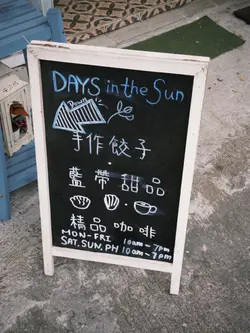 DAYS in the Sun
Down
手作餃子
藍帶甜品
精品咖啡
MON-FRI 10am-7pm
SAT.SUN,PH 10am-7pm